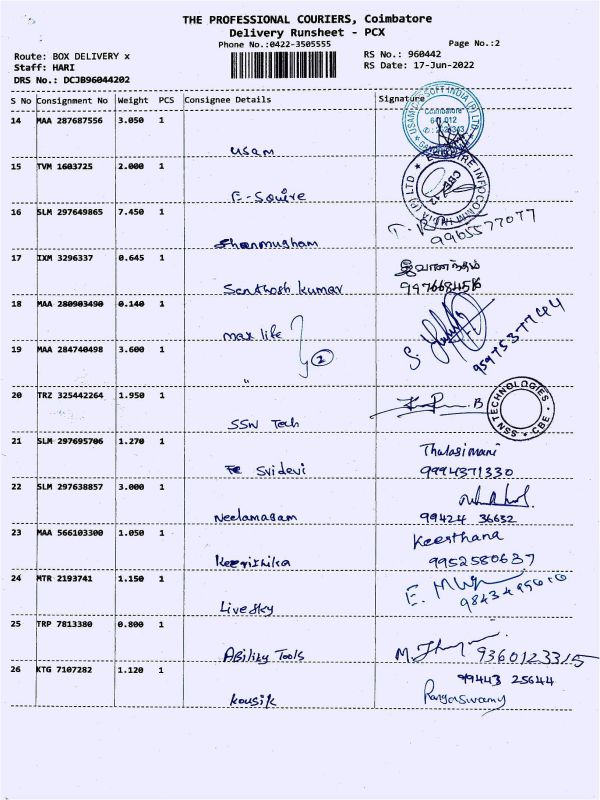 THE PROFESSIONAL COURIERS, Coimbatore
Delivery Runsheet - PCX
Phone No.:0422-3505555
Page No.:2
Route: BOX DELIVERY x
Staff: HARI
DRS No.: DCJB96044202
RS No.: 960442
RS Date: 17-Jun-2022
S No Consignment No Weight PCS Consignee Details Signature
14 MAA 287687556 3.050 1
usam
Coimbatore
15 TVM 1603725 2.000 1
E-Squire
16 SLM 297649865 7.450 1
Shanmugham 9965577077
17 IXM 3296337 0.645 1
இவானந்தம்
Santhosh kumar
18 MAA 280903490 0.140 1
max life
9597537744
19 MAA 284740498 3.600 1
2
"
20 TRZ 325442264 1.950 1
SSN Tech
TECHNOLOGIES CBE SSN
21 SLM 297695706 1.270 1
Thulasimani
Sridevi 9994371330
22 SLM 297638857 3.000 1
Neelamagam 99424 36632
23 MAA 566103300 1.050 1
Keerthana
Keerthika 9952580637
24 MTR 2193741 1.150 1
Live sky
25 TRP 7813380 0.800 1
Ability Tools 9360123315
26 KTG 7107282 1.120 1
99443 25644
kousik Rangaswamy